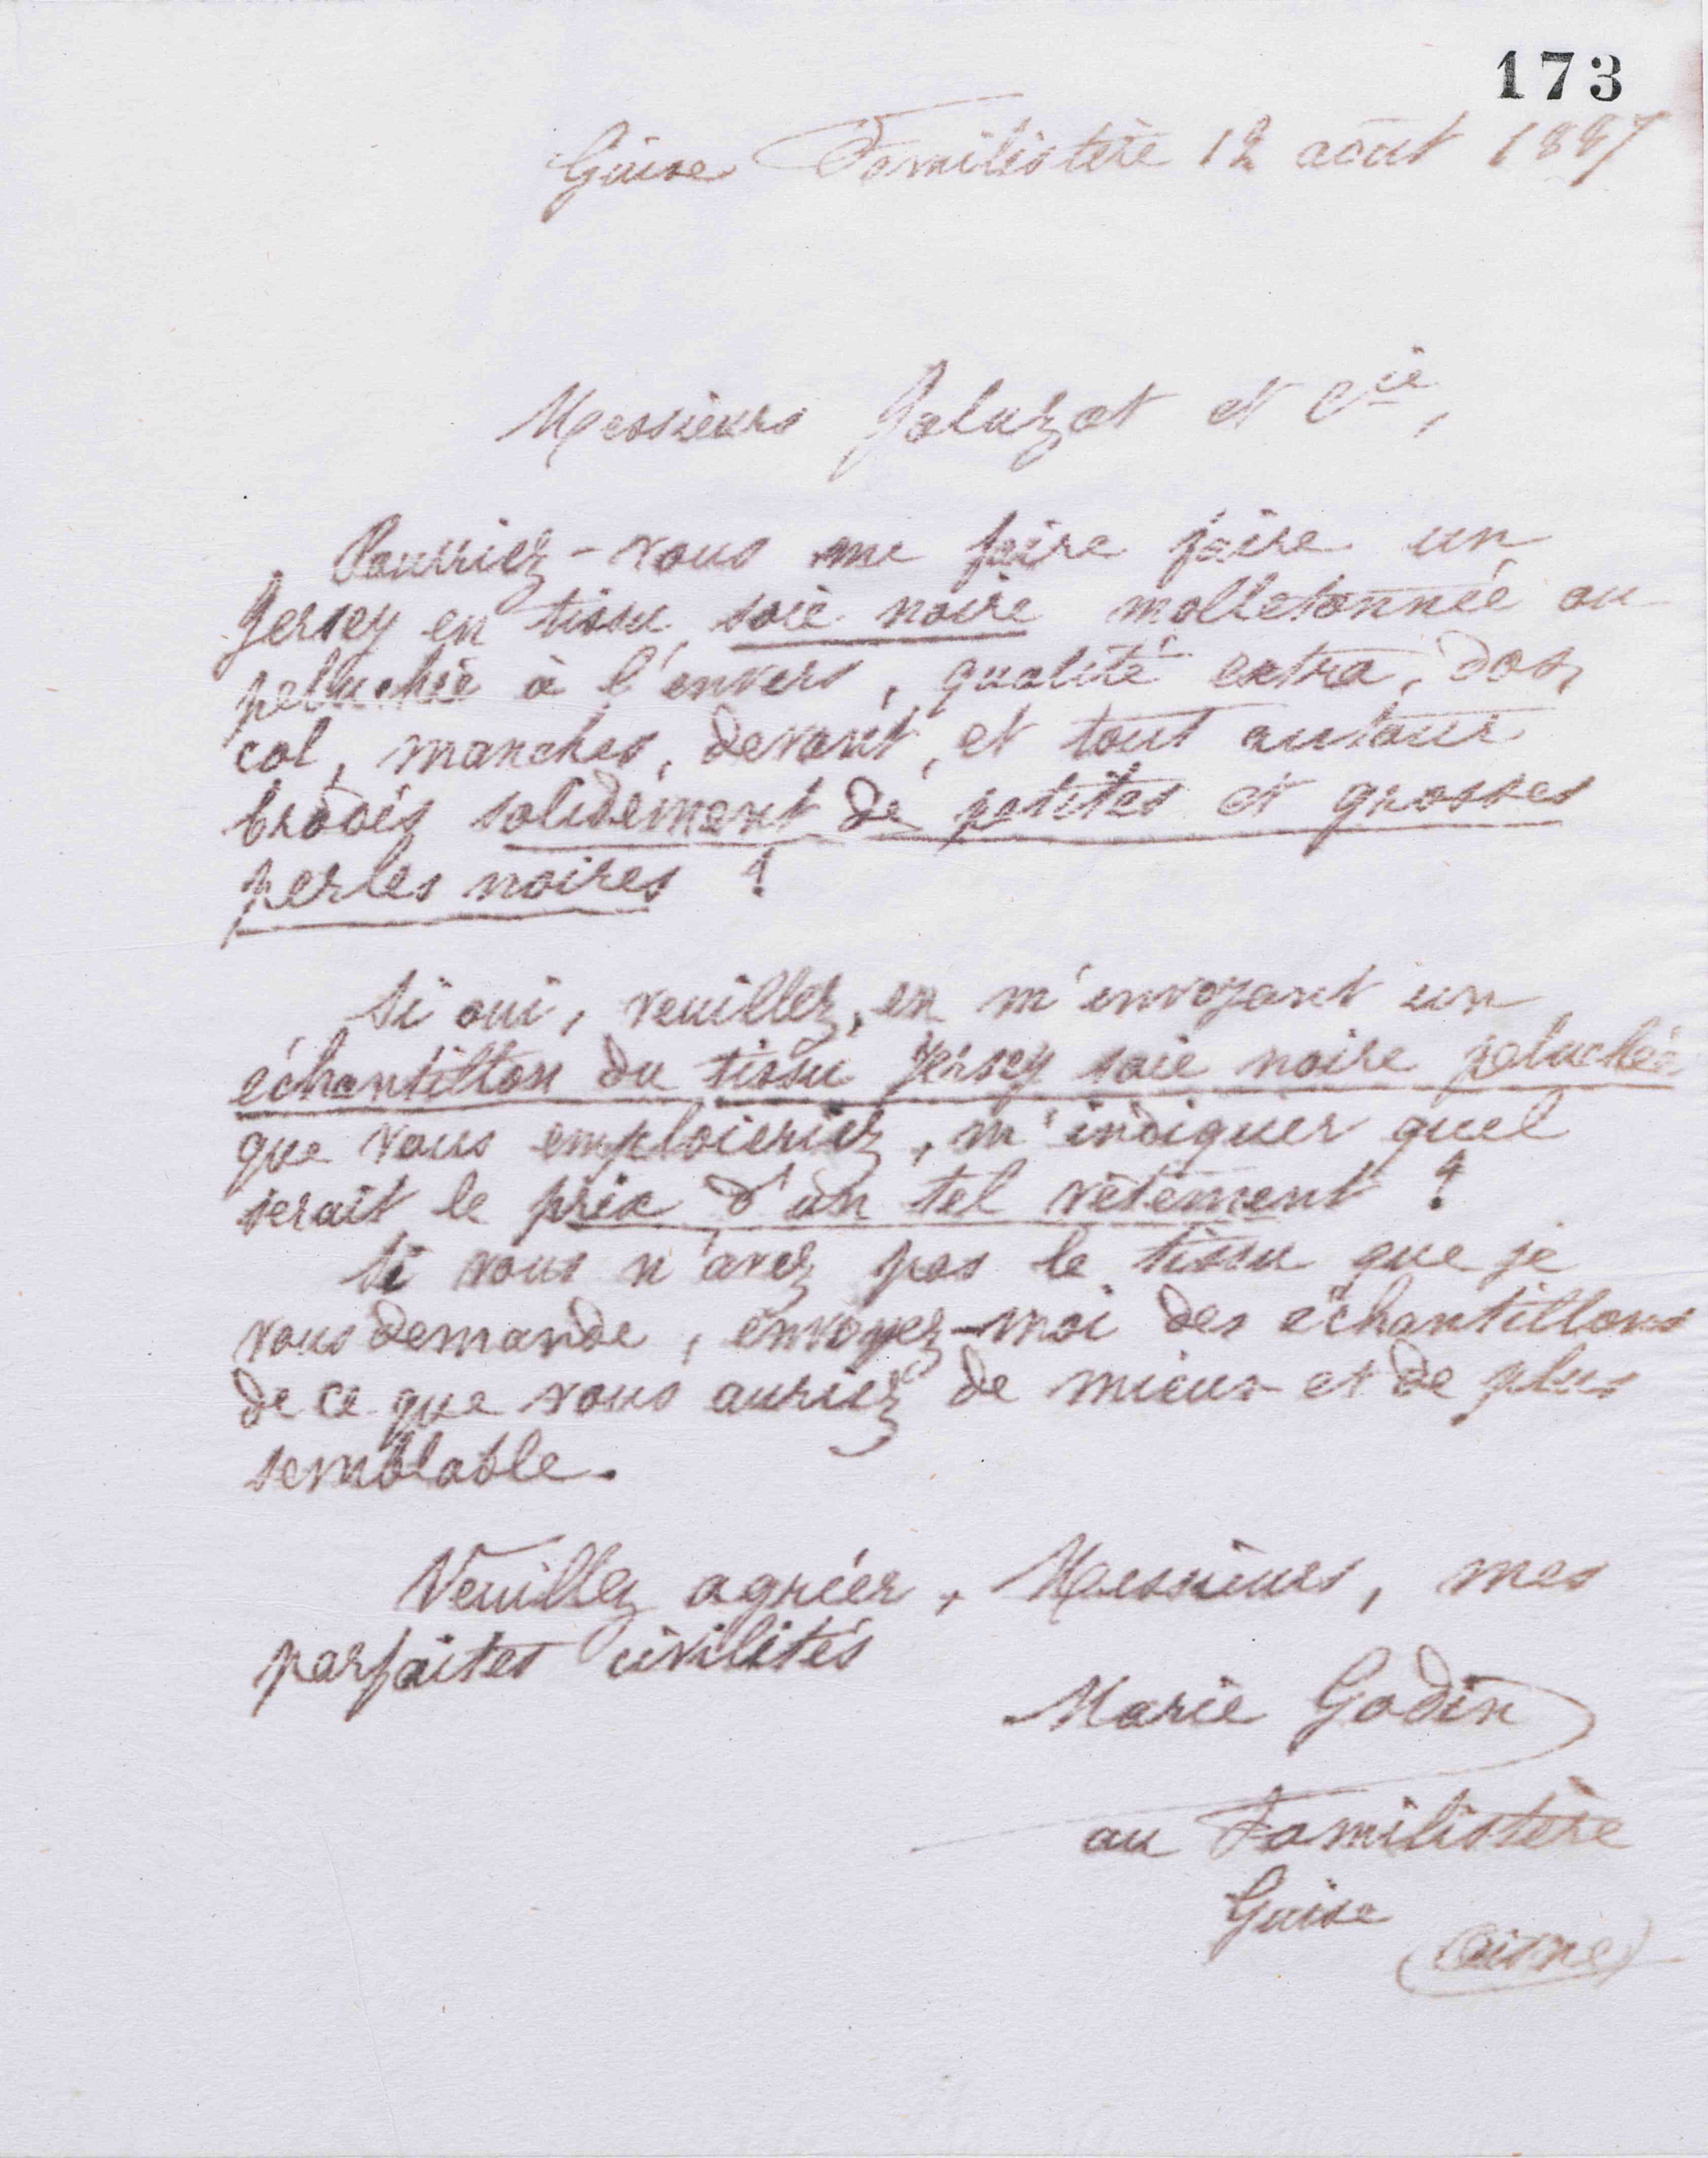 173
Guise Familistère 12 août 1887
Messieurs Jaluzot et Cie,
Pourriez-vous me faire faire un
Jersey en tissu soie noire molletonnée ou
peluchée à l'envers, qualité extra, dos,
col, manches, devant, et tout autour
brodés solidement de petites et grosses
perles noires ?
Si oui, veuillez, en m'envoyant un
échantillon du tissu Jersey soie noire peluchée
que vous emploieriez, m'indiquer quel
serait le prix d'un tel vêtement ?
Si vous n'avez pas le tissu que je
vous demande, envoyez-moi des échantillons
de ce que vous auriez de mieux et de plus
semblable.
Veuillez agréer, Messieurs, mes
parfaites civilités
Marie Godin
au Familistère
Guise
(Aisne)